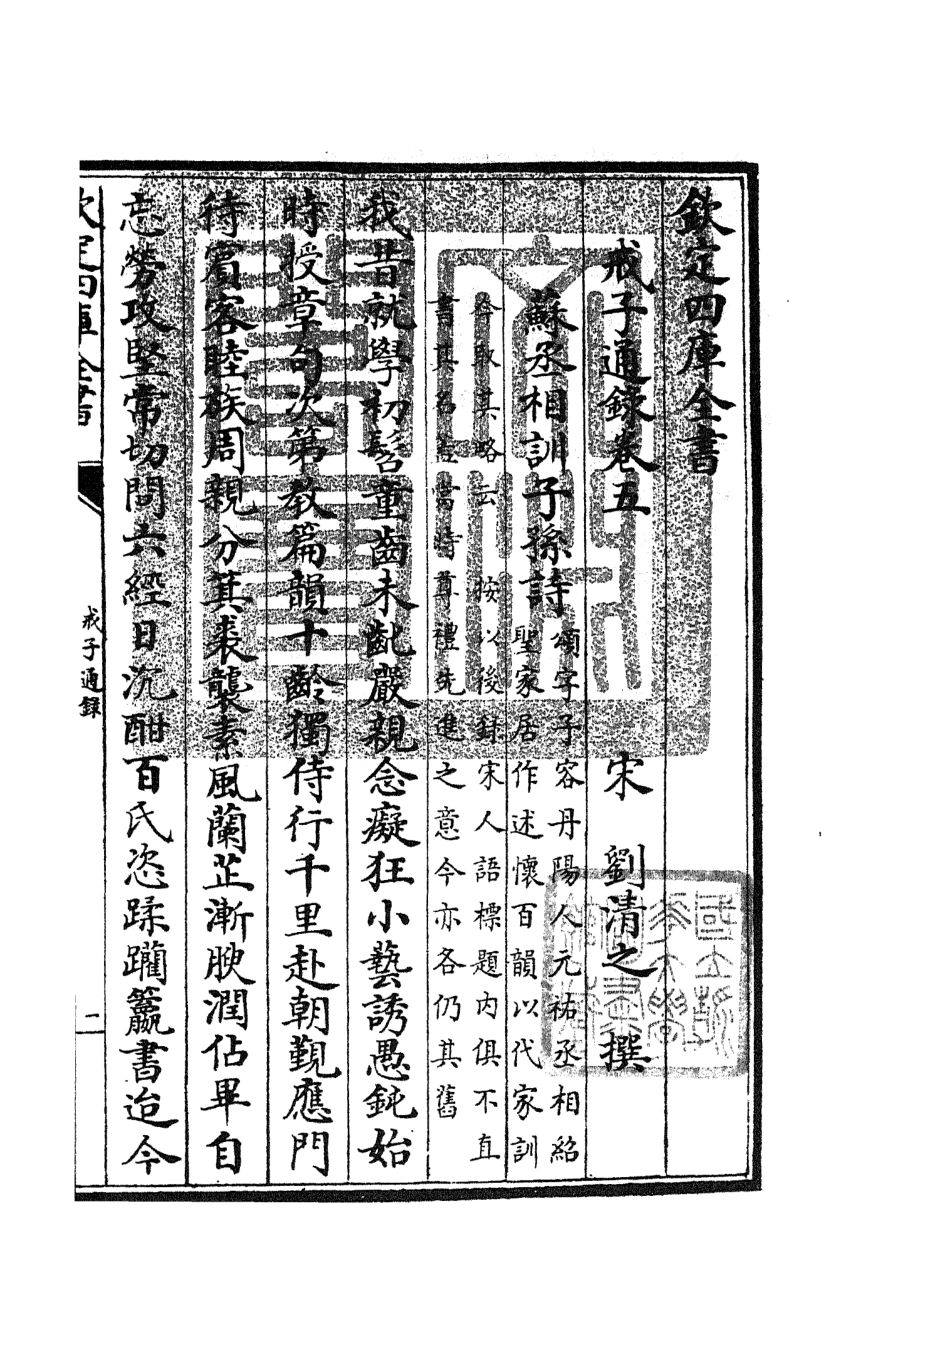 欽定四庫全書
戒子通錄卷五
宋 劉清之 撰
蘇丞相訓子孫詩
頌字子容丹陽人元祐丞相紹
聖家居作述懷百韻以代家訓
今取其略云 按以後録宋人語標題内俱不直
書其名蓋當時尊禮先進之意今亦各仍其舊
我昔就學初髫童齒未齔嚴親念癡狂小藝誘愚鈍始
時授章句次第教篇韻十齡獨侍行千里赴朝覲應門
待賓客睦族周親分箕裘襲素風蘭芷漸腴潤佔畢自
忘勞攻堅常切問六經日沉酣百氏恣蹂躪籯書迨今
欽定四庫全書
戒子通錄